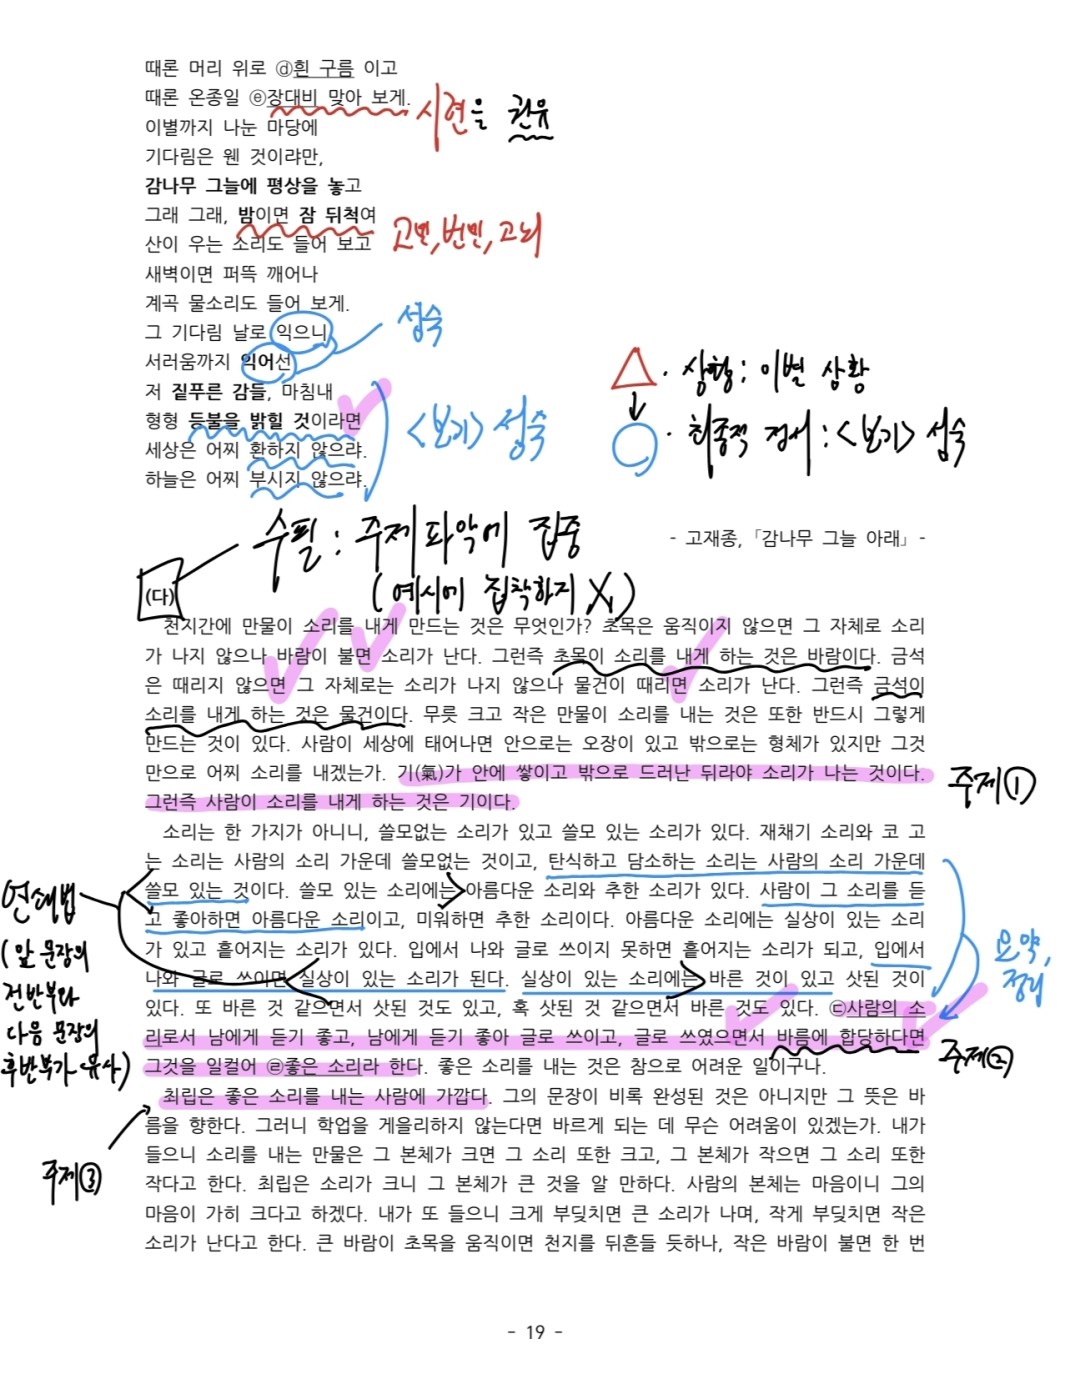 때론 머리 위로 ⓓ흰 구름 이고
때론 온종일 ⓔ장대비 맞아 보게.
시련을 권유
이별까지 나눈 마당에
기다림은 웬 것이랴만,
감나무 그늘에 평상을 놓고
그래 그래, 밤이면 잠 뒤척여
고민, 번민, 고뇌
산이 우는 소리도 들어 보고
새벽이면 퍼뜩 깨어나
계곡 물소리도 들어 보게.
그 기다림 날로 익으니
성숙
서러움까지 익어선
저 짙푸른 감들, 마침내
형형 등불을 밝힐 것이라면
<보기> 성숙
세상은 어찌 환하지 않으랴.
하늘은 어찌 부시지 않으랴.
△ · 상황: 이별 상황
↓
○ · 최종적 정서: <보기> 성숙
수필: 주제 파악에 집중
(예시에 집착하지 X)
- 고재종, 「감나무 그늘 아래」 -
(다)
천지간에 만물이 소리를 내게 만드는 것은 무엇인가? 초목은 움직이지 않으면 그 자체로 소리
가 나지 않으나 바람이 불면 소리가 난다. 그런즉 초목이 소리를 내게 하는 것은 바람이다. 금석
은 때리지 않으면 그 자체로는 소리가 나지 않으나 물건이 때리면 소리가 난다. 그런즉 금석이
소리를 내게 하는 것은 물건이다. 무릇 크고 작은 만물이 소리를 내는 것은 또한 반드시 그렇게
만드는 것이 있다. 사람이 세상에 태어나면 안으로는 오장이 있고 밖으로는 형체가 있지만 그것
만으로 어찌 소리를 내겠는가. 기(氣)가 안에 쌓이고 밖으로 드러난 뒤라야 소리가 나는 것이다.
그런즉 사람이 소리를 내게 하는 것은 기이다.
주제①
소리는 한 가지가 아니니, 쓸모없는 소리가 있고 쓸모 있는 소리가 있다. 재채기 소리와 코 고
는 소리는 사람의 소리 가운데 쓸모없는 것이고, 탄식하고 담소하는 소리는 사람의 소리 가운데
쓸모 있는 것이다. 쓸모 있는 소리에는 아름다운 소리와 추한 소리가 있다. 사람이 그 소리를 듣
고 좋아하면 아름다운 소리이고, 미워하면 추한 소리이다. 아름다운 소리에는 실상이 있는 소리
가 있고 흩어지는 소리가 있다. 입에서 나와 글로 쓰이지 못하면 흩어지는 소리가 되고, 입에서
나와 글로 쓰이면 실상이 있는 소리가 된다. 실상이 있는 소리에는 바른 것이 있고 삿된 것이
있다. 또 바른 것 같으면서 삿된 것도 있고, 혹 삿된 것 같으면서 바른 것도 있다. ㉢사람의 소
리로서 남에게 듣기 좋고, 남에게 듣기 좋아 글로 쓰이고, 글로 쓰였으면서 바름에 합당하다면
그것을 일컬어 ㉣좋은 소리라 한다. 좋은 소리를 내는 것은 참으로 어려운 일이구나.
연쇄법
(앞 문장의
전반부와
다음 문장의
후반부가 유사)
요약,
정립
주제②
최립은 좋은 소리를 내는 사람에 가깝다. 그의 문장이 비록 완성된 것은 아니지만 그 뜻은 바
름을 향한다. 그러니 학업을 게을리하지 않는다면 바르게 되는 데 무슨 어려움이 있겠는가. 내가
들으니 소리를 내는 만물은 그 본체가 크면 그 소리 또한 크고, 그 본체가 작으면 그 소리 또한
작다고 한다. 최립은 소리가 크니 그 본체가 큰 것을 알 만하다. 사람의 본체는 마음이니 그의
마음이 가히 크다고 하겠다. 내가 또 들으니 크게 부딪치면 큰 소리가 나며, 작게 부딪치면 작은
소리가 난다고 한다. 큰 바람이 초목을 움직이면 천지를 뒤흔들 듯하나, 작은 바람이 불면 한 번
주제③
- 19 -